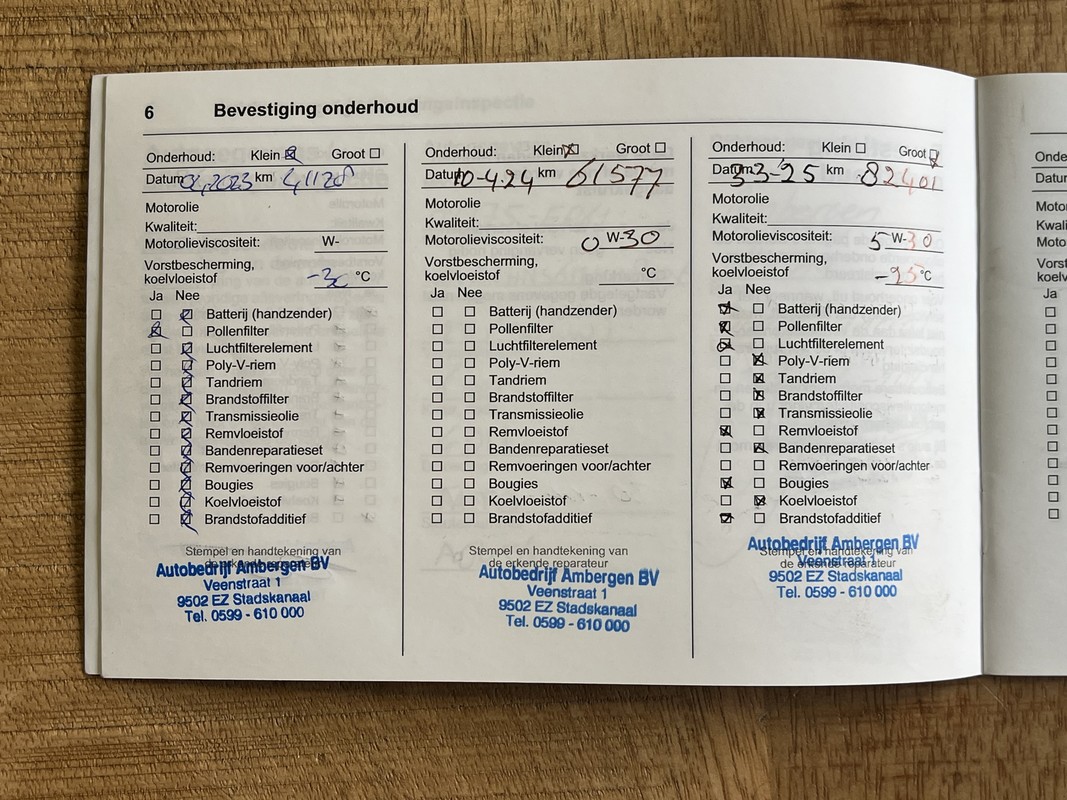 6 Bevestiging onderhoud
Onderhoud: Klein Groot
Datum 04,2023 km 41128
Motorolie
Kwaliteit:
Motorolieviscositeit: W-
Vorstbescherming,
koelvloeistof °C
Ja Nee
Batterij (handzender)
Pollenfilter
Luchtfilterelement
Poly-V-riem
Tandriem
Brandstoffilter
Transmissieolie
Remvloeistof
Bandenreparatieset
Remvoeringen voor/achter
Bougies
Koelvloeistof
Brandstofadditief
Stempel en handtekening van
Autobedrijf Ambergen BV
Veenstraat 1
9502 EZ Stadskanaal
Tel. 0599 - 610 000
Onderhoud: Klein Groot
Datum 10-4-24 km 61577
Motorolie
Kwaliteit:
Motorolieviscositeit: 0 W-30
Vorstbescherming,
koelvloeistof °C
Ja Nee
Batterij (handzender)
Pollenfilter
Luchtfilterelement
Poly-V-riem
Tandriem
Brandstoffilter
Transmissieolie
Remvloeistof
Bandenreparatieset
Remvoeringen voor/achter
Bougies
Koelvloeistof
Brandstofadditief
Stempel en handtekening van
de erkende reparateur
Autobedrijf Ambergen BV
Veenstraat 1
9502 EZ Stadskanaal
Tel. 0599 - 610 000
Onderhoud: Klein Groot
Datum km 82401
Motorolie
Kwaliteit:
Motorolieviscositeit: 5 W-30
Vorstbescherming,
koelvloeistof °C
Ja Nee
Batterij (handzender)
Pollenfilter
Luchtfilterelement
Poly-V-riem
Tandriem
Brandstoffilter
Transmissieolie
Remvloeistof
Bandenreparatieset
Remvoeringen voor/achter
Bougies
Koelvloeistof
Brandstofadditief
Stempel en handtekening van
de erkende reparateur
Autobedrijf Ambergen BV
Veenstraat 1
9502 EZ Stadskanaal
Tel. 0599 - 610 000
Onde
Datum
Moto
Kwali
Moto
Vorst
koelv
Ja